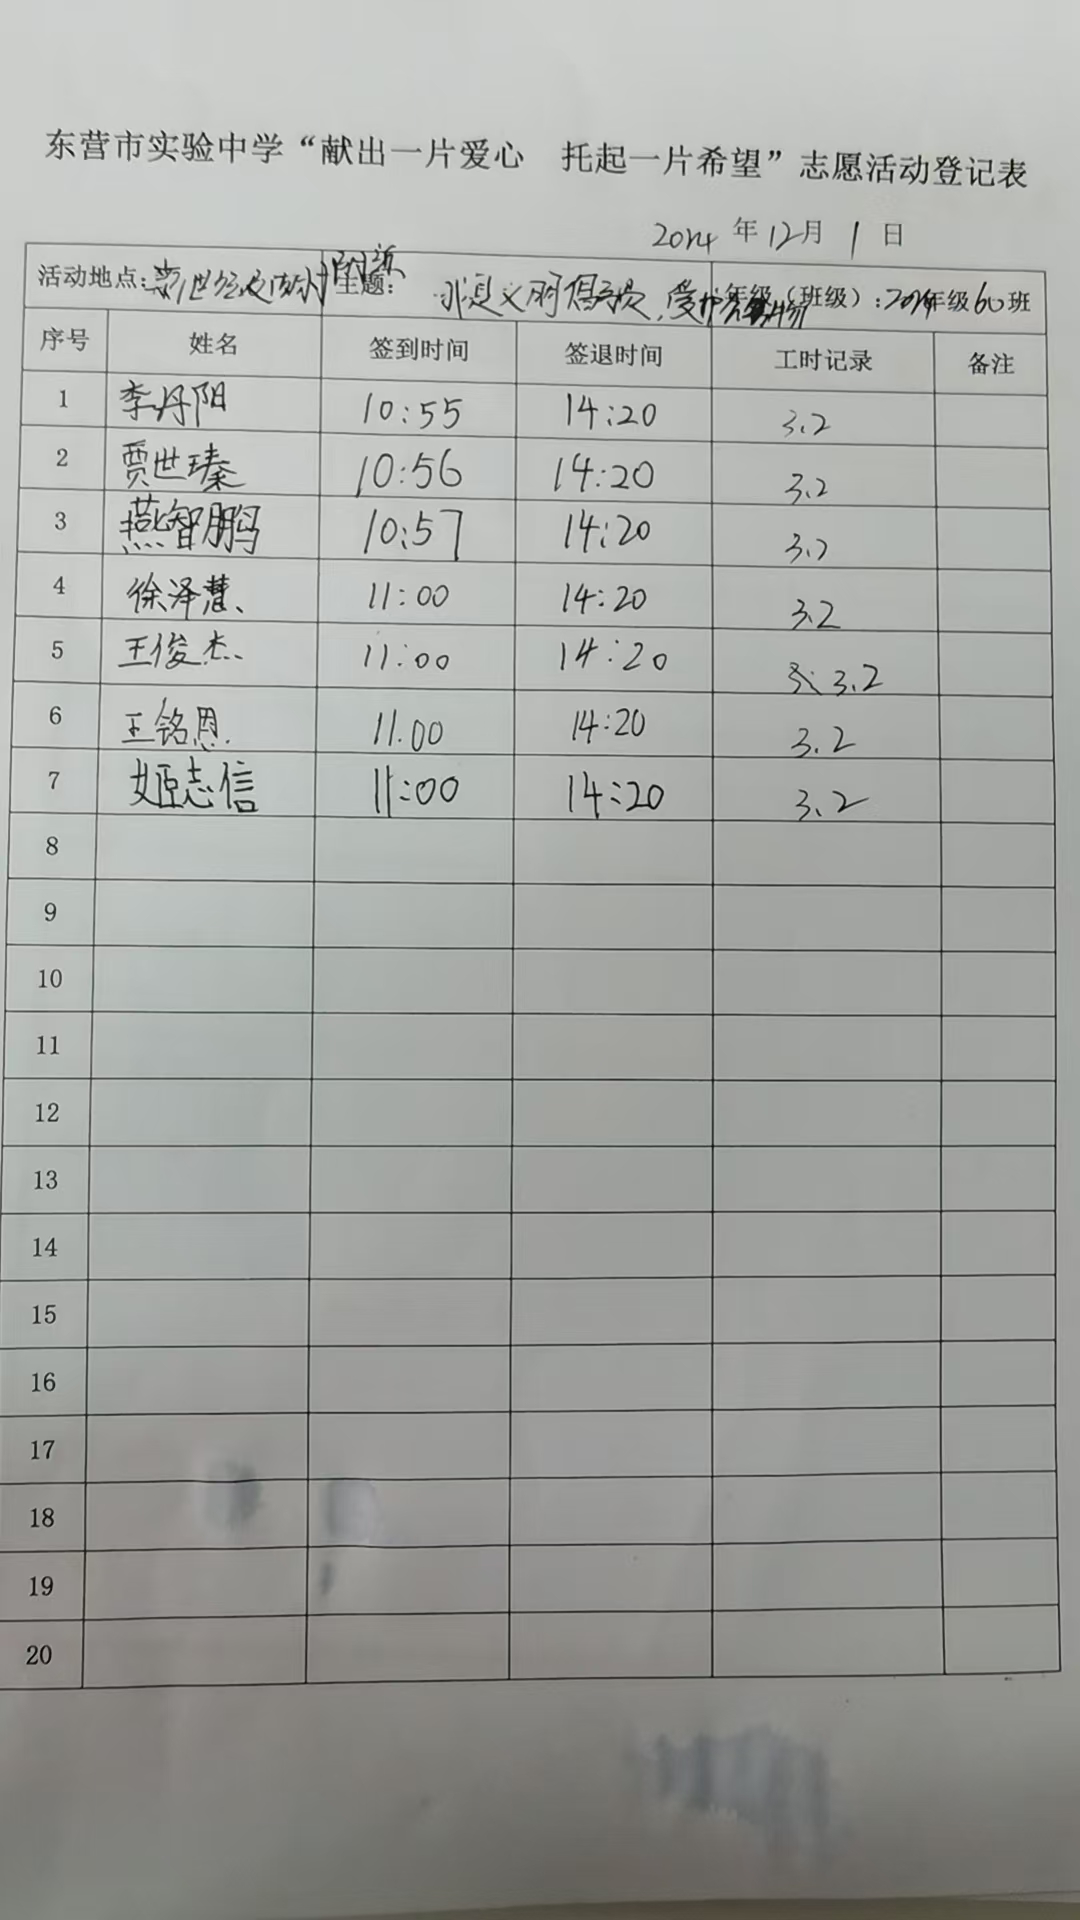 东营市实验中学“献出一片爱心 托起一片希望”志愿活动登记表
2024 年 12 月 1 日
活动地点: 附近 主题: 年级（班级）: 级 60 班
序号 姓名 签到时间 签退时间 工时记录 备注
1 李丹阳 10:55 14:20 3.2
2 贾世臻 10:56 14:20 3.2
3 燕智鹏 10:57 14:20 3.2
4 徐泽慧 11:00 14:20 3.2
5 王俊杰 11:00 14:20 3.2
6 王铭恩 11.00 14:20 3.2
7 姬志信 11:00 14:20 3.2
8
9
10
11
12
13
14
15
16
17
18
19
20